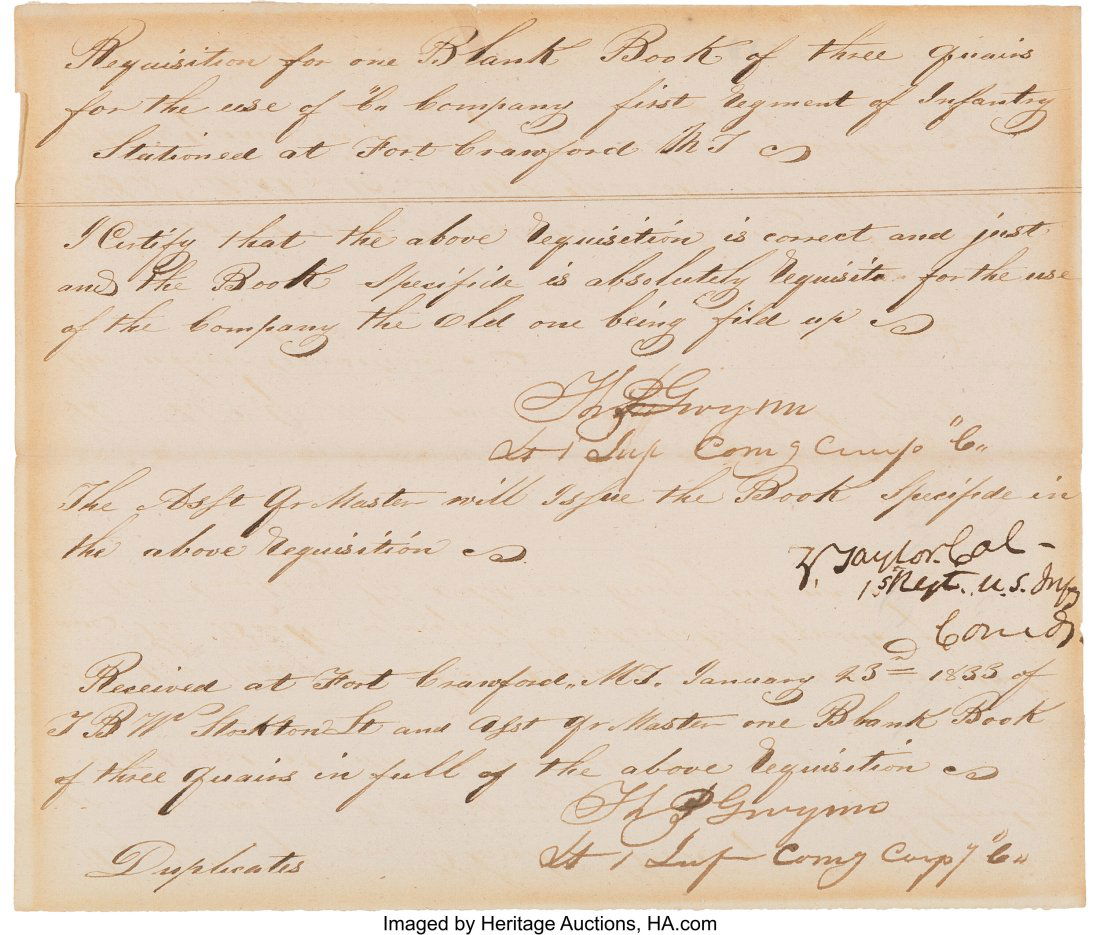 Requisition for one Blank Book of three quairs
for the use of "C" Company first Regment of Infantry
Stationed at Fort Crawford M T
I Certify that the above Requisition is correct and just
and the Book Specifide is absolutely Requisite for the use
of the Company the Old one being fild up
Th P Gwynn
Lt 1 Inf Comg Comp "C"
The Asst Qr Master will Issue the Book Specifide in
the above Requisition
Z. Taylor Col
1st Regt. U.S. Inf
Comdg.
Received at Fort Crawford, M.T. January 23rd 1833 of
T B W Stockton Lt and Asst Qr Master one Blank Book
of three quairs in full of the above Requisition
Th P Gwynn
Lt 1 Inf Comg Comp "C"
Duplicates
Imaged by Heritage Auctions, HA.com